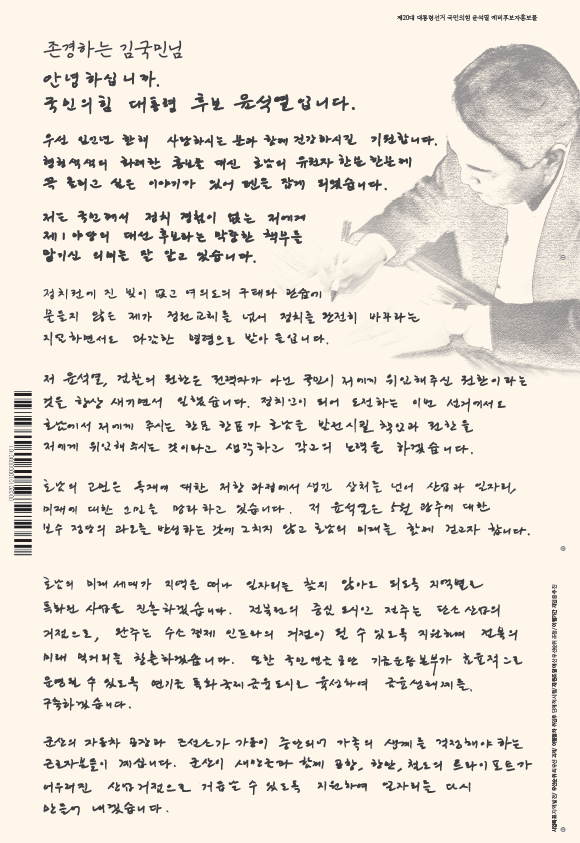 제20대 대통령선거 국민의힘 윤석열 예비후보자홍보물
존경하는 김국민님
안녕하십니까.
국민의힘 대통령 후보 윤석열입니다.
우선 임인년 한해 사랑하시는 분과 함께 건강하시길 기원합니다.
형형색색의 화려한 홍보물 대신 호남의 유권자 한분 한분께
꼭 드리고 싶은 이야기가 있어 펜을 잡게 되었습니다.
저는 국민께서 정치 경험이 없는 저에게
제1야당의 대선 후보라는 막중한 책무를
맡기신 의미를 잘 알고 있습니다.
정치권에 진 빚이 없고 여의도의 구태와 관습에
물들지 않은 제가 정권교체를 넘어 정치를 완전히 바꾸라는
지엄하면서도 과감한 명령으로 받아들입니다.
저 윤석열, 검찰의 권한은 권력자가 아닌 국민이 저에게 위임해주신 권한이라는
것을 항상 새기면서 일했습니다. 정치인이 되어 도전하는 이번 선거에서도
호남에서 저에게 주시는 한표 한표가 호남을 발전시킬 책임과 권한을
저에게 위임해 주시는 것이라고 생각하고 각고의 노력을 하겠습니다.
호남의 고민은 독재에 대한 저항 과정에서 생긴 상처를 넘어 산업과 일자리,
미래에 대한 고민을 말하고 있습니다. 저 윤석열은 5월 광주에 대한
보수 정당의 과오를 반성하는 것에 그치지 않고 호남의 미래를 함께 걷고자 합니다.
호남의 미래세대가 지역을 떠나 일자리를 찾지 않아도 되도록 지역별로
특화된 사업을 진흥하겠습니다. 전북권의 중심 도시인 전주는 탄소 산업의
거점으로, 완주는 수소경제 인프라의 거점이 될 수 있도록 지원하며 전북의
미래 먹거리를 창출하겠습니다. 또한 국민연금공단 기금운용본부가 효율적으로
운영될 수 있도록 연기금 특화 국제금융도시로 육성하여 금융생태계를
구축하겠습니다.
군산의 자동차 공장과 조선소가 가동이 중단되어 가족의 생계를 걱정해야 하는
근로자분들이 계십니다. 군산이 새만금과 함께 공항, 항만, 철도의 트라이포트가
어우러진 산업거점으로 거듭날 수 있도록 지원하여 일자리를 다시
만들어 내겠습니다.